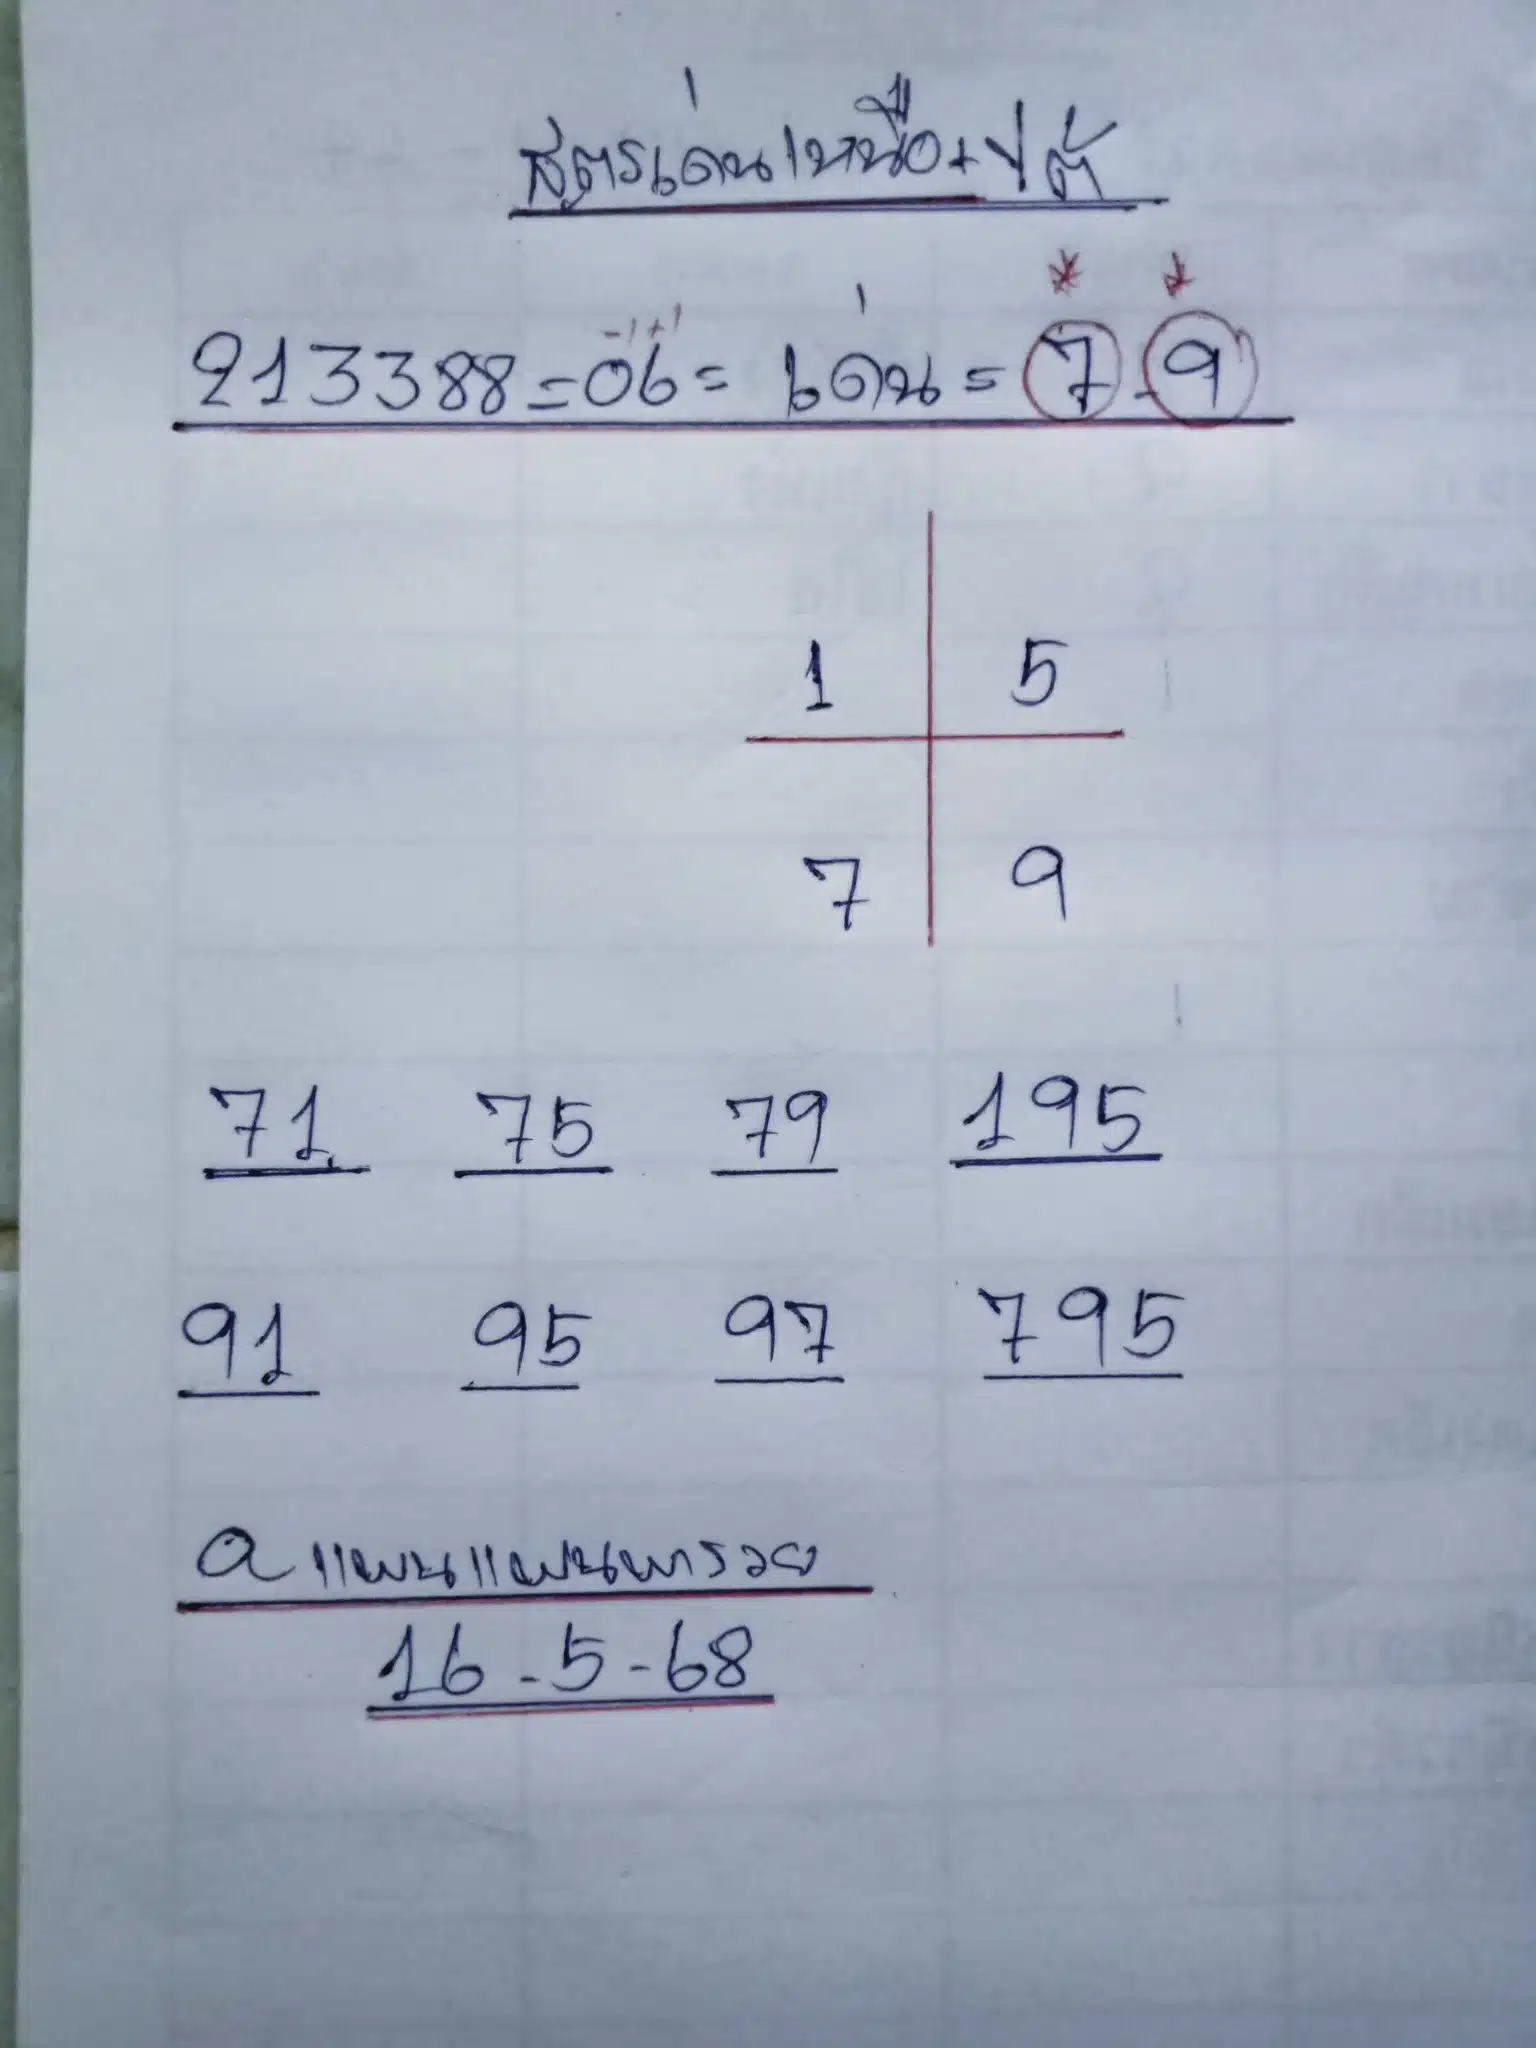 สูตรเด่นเหนือ+ใต้
-1+1
213388=06= เด่น = 7-9
1 5
7 9
71 75 79 195
91 95 97 795
อ แพนแพนพารวย
16-5-68